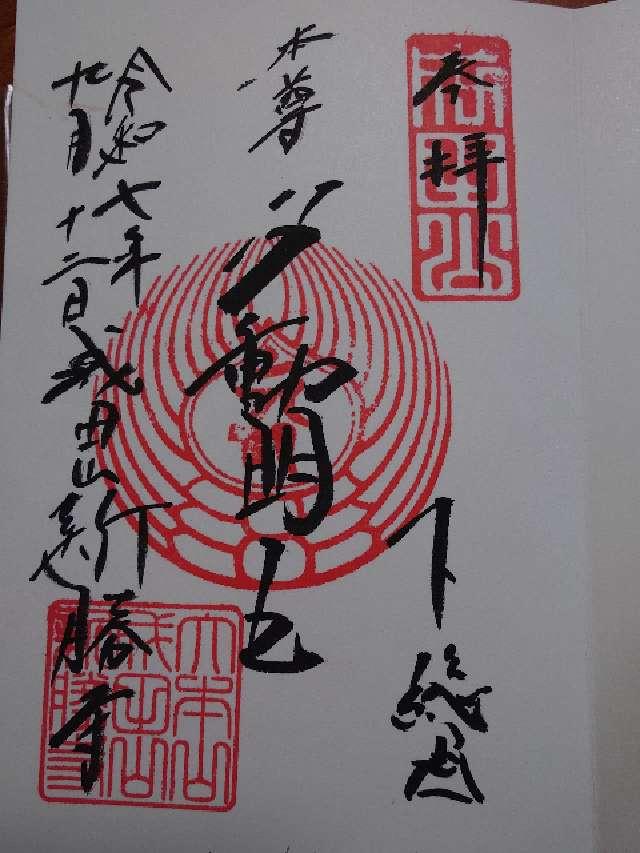 奉拝
成田山
下総国
本尊 不動明王
令和七年
九月十二日
成田山新勝寺
大本山
成田山